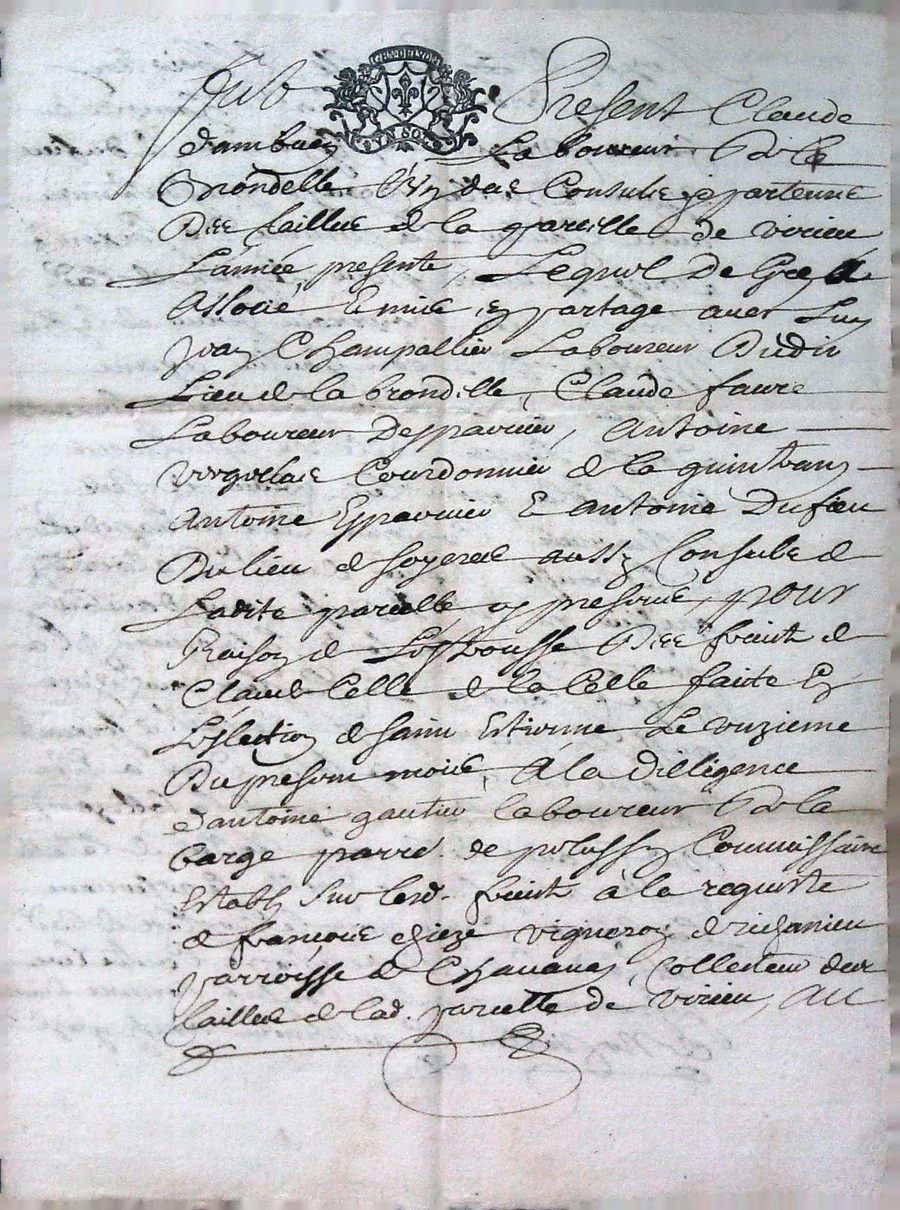 GEN. DE LYON
UN SOL
Present Claude
Laboureur de la
Brondelle Consulz
Des tailles de la parcelle de virieu
Lannée presente, Lequel de Gre a
Associé Et mis en partage avec Luy
Jean Champallier Laboureur Dudit
Lieu de la brondelle, Claude faure
Laboureur Desparvier, Antoine
Courdonnier de la
Antoine Esparvier Et Antoine Dufieu
Du lieu de aussy Consulz de
Ladite parcelle presens, pour
Raison de Des fruits de
Claude Celle de la Celle faite En
Leslection de Saint Estienne Le onzieme
Du presant mois, A la dilligence
dantoine gautier laboureur de la
barge parr. de pelussin Commissaire
establi sur lesd. fruits à la requeste
de françois vigneron de
parroisse de Chavanay, Collecteur des
tailles de lad. parcelle de virieu, au